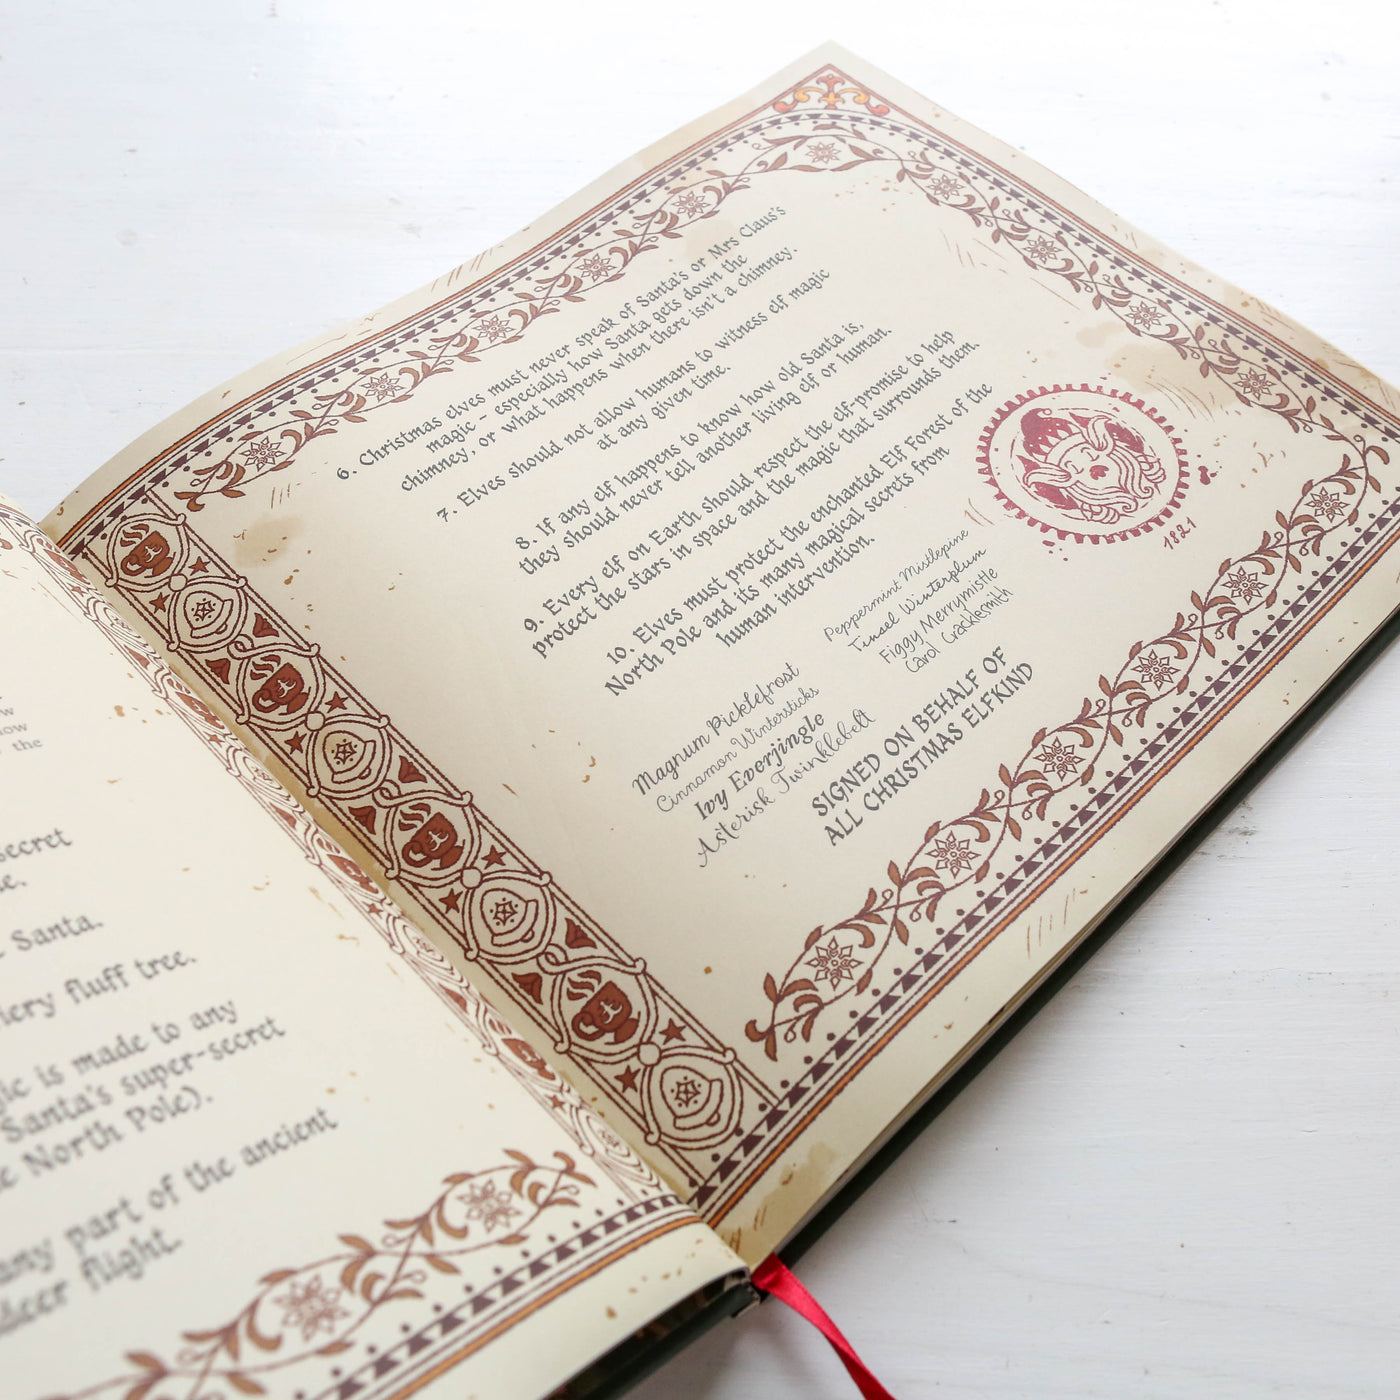 w
now
the
secret
Santa.
fluff tree.
is made to any
Santa's super-secret
North Pole).
any part of the ancient
flight.
6. Christmas elves must never speak of Santa's or Mrs Claus's
magic – especially how Santa gets down the
chimney, or what happens when there isn't a chimney.
7. Elves should not allow humans to witness elf magic
at any given time.
8. If any elf happens to know how old Santa is,
they should never tell another living elf or human.
9. Every elf on Earth should respect the elf-promise to help
protect the stars in space and the magic that surrounds them.
10. Elves must protect the enchanted Elf Forest of the
North Pole and its many magical secrets from
human intervention.
Magnum Picklefrost
Cinnamon Wintersticks
Ivy Everjingle
Asterisk Twinklebelt
Peppermint Mistlepine
Tinsel Winterplum
Figgy Merrymistle
Carol Cracklesmith
SIGNED ON BEHALF OF
ALL CHRISTMAS ELFKIND
1821